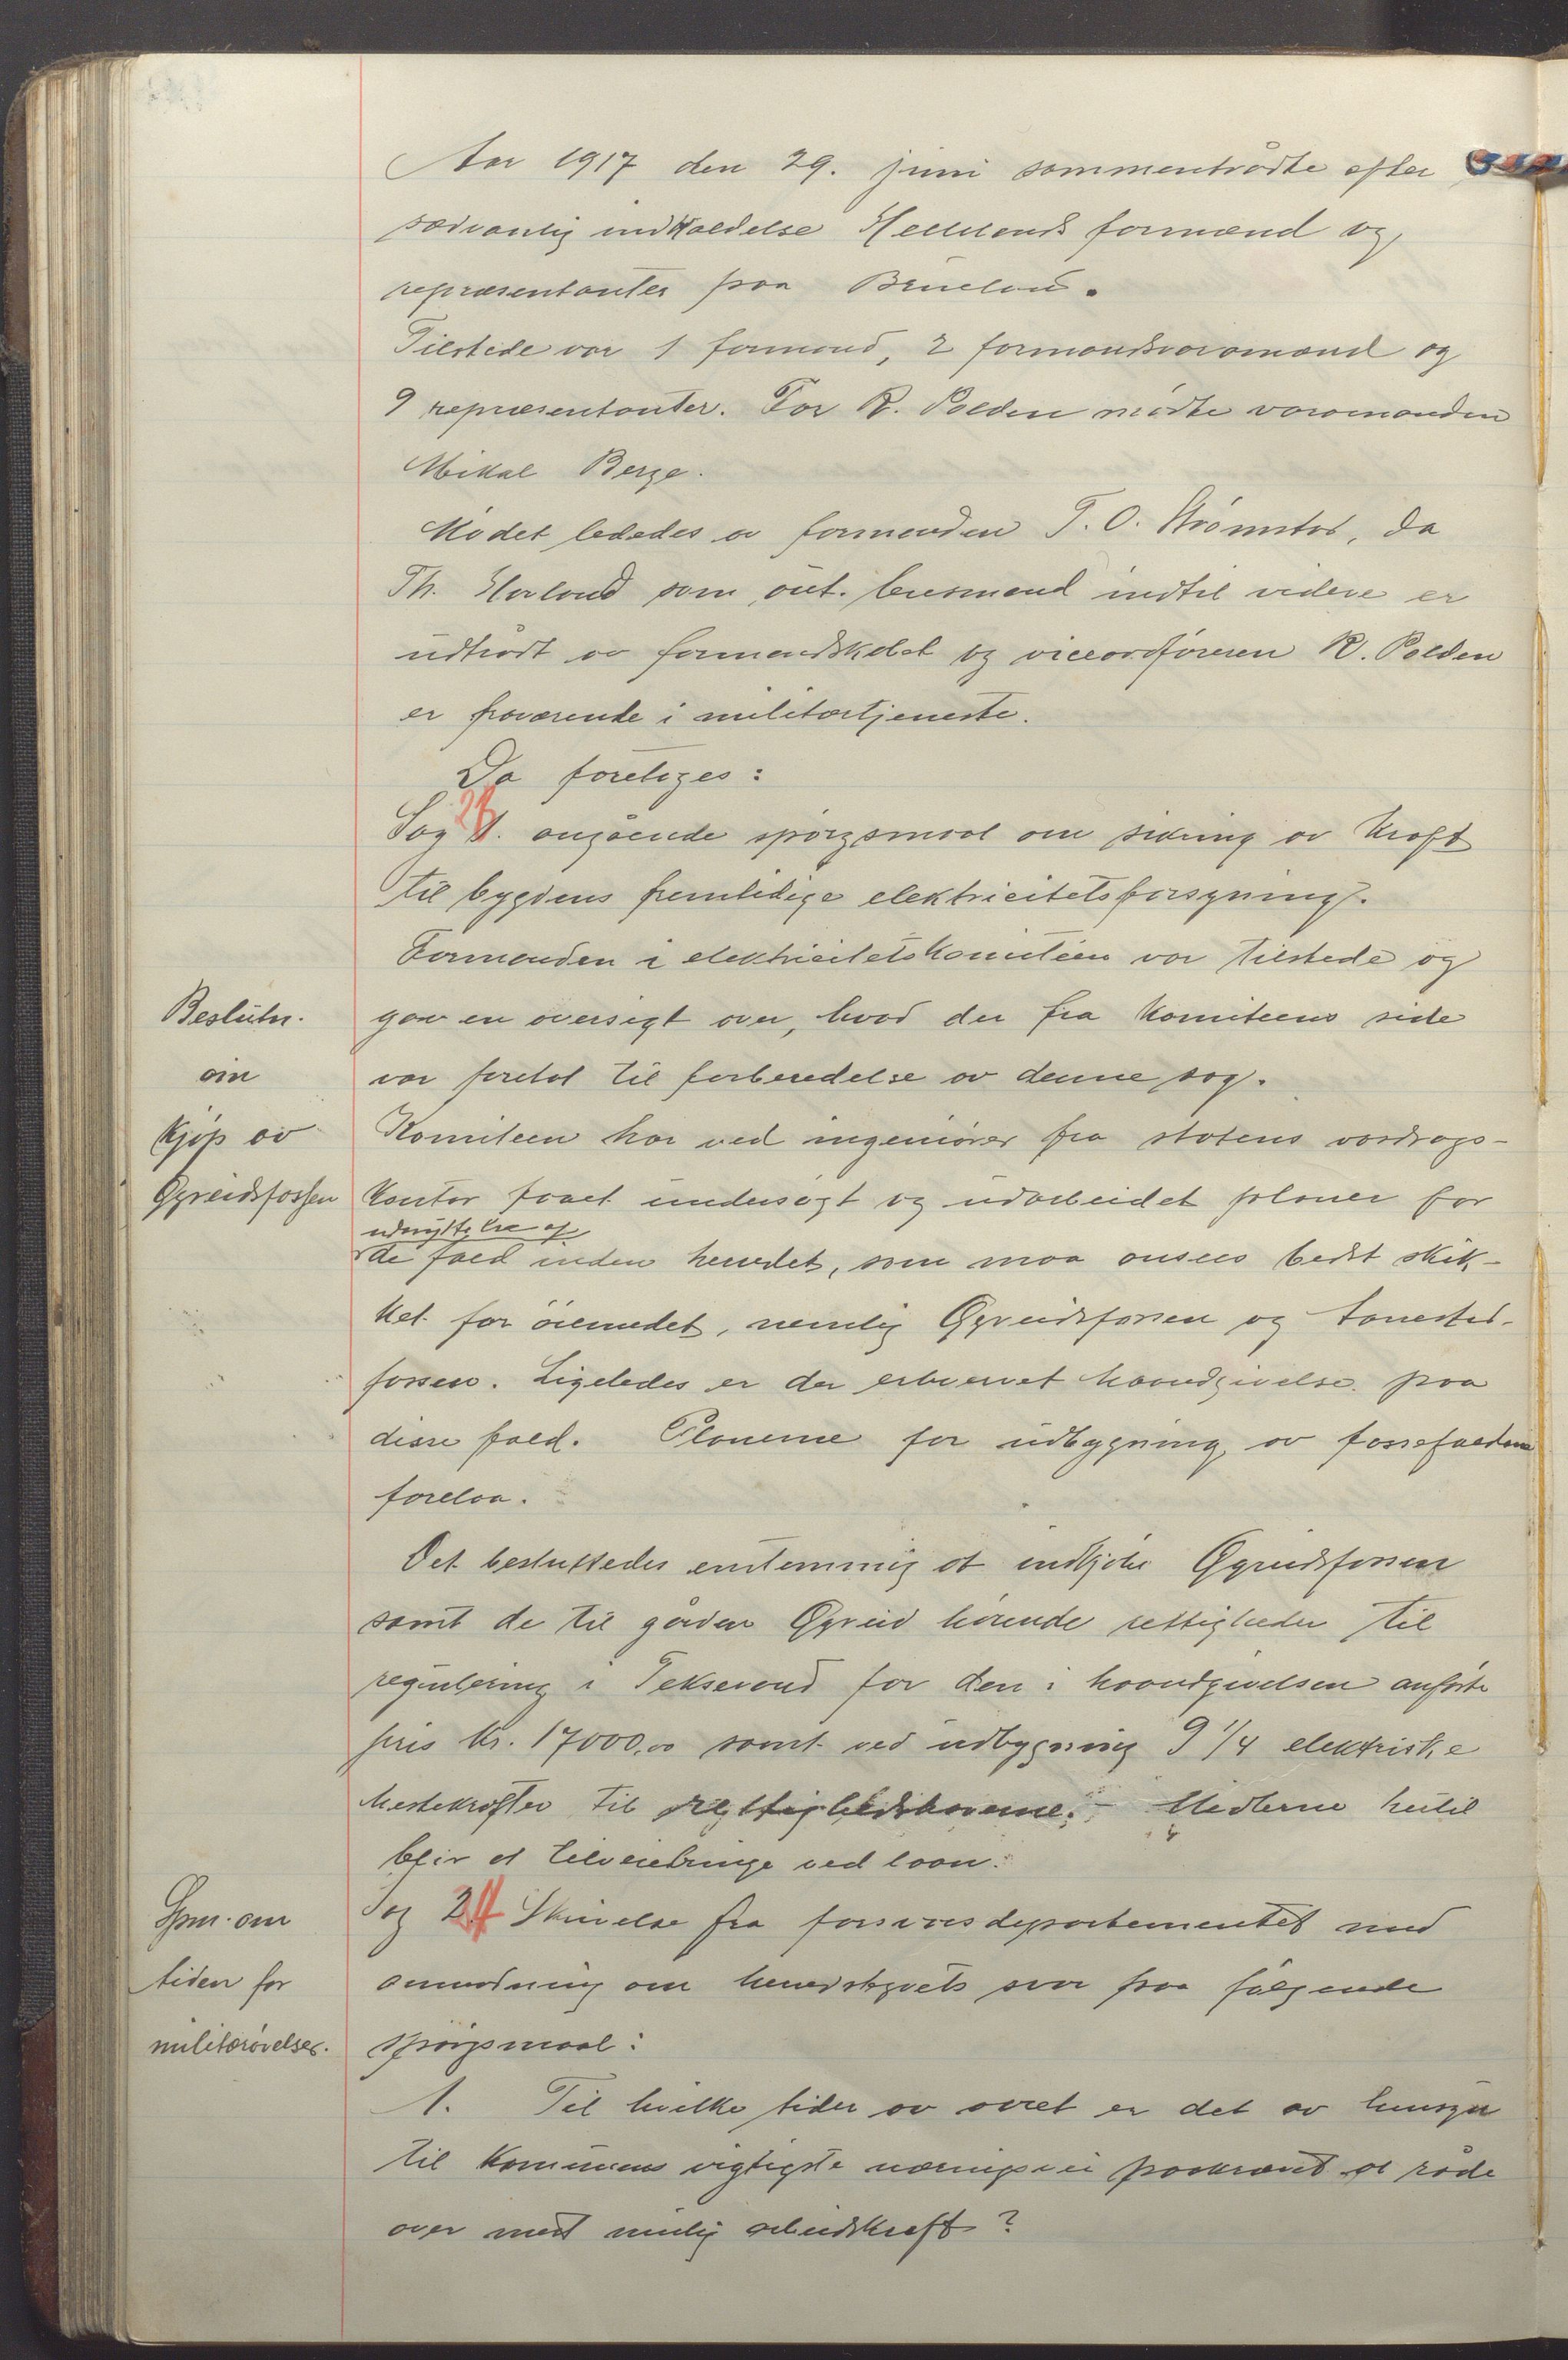 Aar 1917 den 29. juni sammentrådte efter
sædvanlig indkaldelse Hellelands formænd og
repræsentanter paa Bruelan.
Tilstede var 1 formand, 2 formandsvaramænd og
9 repræsentanter. For R. Polden mødte varamanden
Mikal Berge.
Mødet lededes av formanden T. O. Strømstad, da
Th. Havland som lensmand indtil videre er
udtrådt av formandskabet og viceordføreren R. Polden
er fraværende i militærtjeneste.
Da foretages:
Sag 1. angående spørgsmaal om sikring av kraft
til bygdens fremtidige elektricitetsforsyning.
Formanden i elektricitetskomitéen var tilstede og
Beslutn.
gav en oversigt over, hvad der fra komiteens side
om
var foretat til forberedelse av denne sag.
kjøp av
Komiteen har ved ingeniører fra statens vasdrags-
Gyreidsfossen
kontor faaet undersøgt og udarbeidet planer for
udnyttelse af
de fald inden herredet, som maa ansees bedst skik-
ket for øiemedet, nemlig Gyreidsfossen og Tonestad-
fossen. Ligeledes er der erhvervet haandgivelse paa
disse fald. Planerne for udbygning av fossefaldene
forelaa.
Det besluttedes enstemmig at indkjøbe Gyreidsfossen
samt de til gården Gyreid hørende rettigheder til
regulering i Teksevand for den i haandgivelsen anførte
pris kr. 17000,00 samt ved udbygning 9 1/4 elektriske
hestekræfter til rettighedshaverne. Midlerne hertil
blir at tilveiebringe ved laan.
Spm. om
Sag 2. Skrivelse fra forsvarsdepartementet med
tiden for
anmodning om herredstyrets svar paa følgende
militærøvelser.
spørgsmaal:
1. Til hvilke tider av aaret er det av hensyn
til kommunens vigtigste næringsvei paakrævet at råde
over mest mulig arbeidskraft?